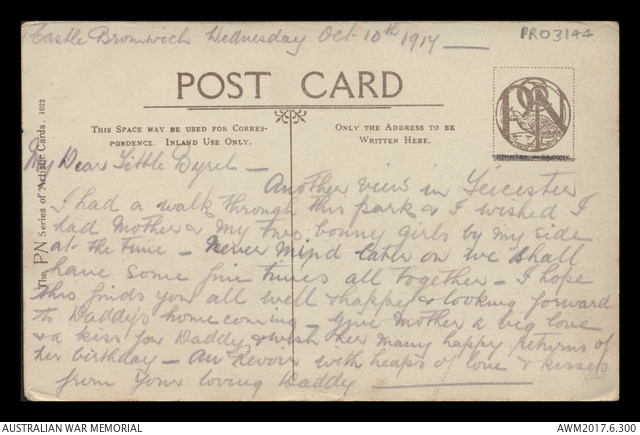 Castle Bromwich Wednesday Oct. 10th 1917
PRO3144
POST CARD
THIS SPACE MAY BE USED FOR CORRES-
PONDENCE. INLAND USE ONLY.
ONLY THE ADDRESS TO BE
WRITTEN HERE.
The PN Series of Artistic Cards. 1022
My Dear Little Byrel -
Another view in Leicester
I had a walk through this park & I wished I
had Mother & my two bonny girls by my side
at the time - Never mind later on we shall
have some fine times all together - I hope
this finds you all well & happy & looking forward
to Daddy's home coming - Give Mother a big love
& a kiss for Daddy & wish her many happy returns of
her birthday - Au Revoir with heaps of love & kisses
from your loving Daddy
AUSTRALIAN WAR MEMORIAL
AWM2017.6.300